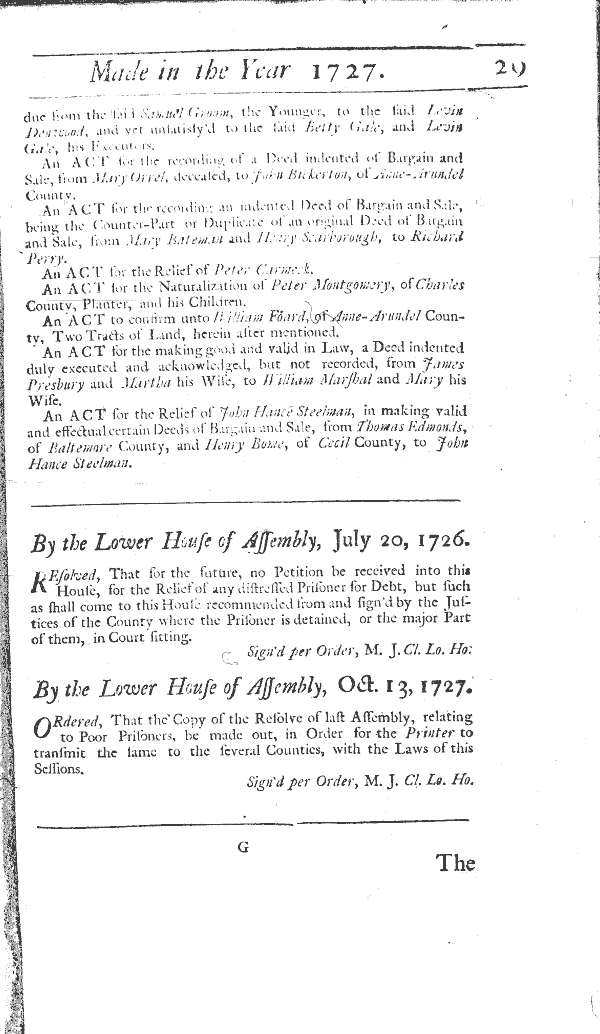 Made in the Year 1727. 29
due from the ſaid Samuel Groom, the Younger, to the ſaid Levin
Denwood, and yet unſatisfy'd to the ſaid Betty Gale, and Levin
Gale, his Executors.
An ACT for the recording of a Deed indented of Bargain and
Sale, from Mary Orrel, deceaſed, to John Bickerton, of Anne-Arundel
County.
An ACT for the recording an indented Deed of Bargain and Sale,
being the Counter-Part or Duplicate of an original Deed of Bargain
and Sale, from Mary Bateman and Henry Scarborough, to Richard
Perry.
An ACT for the Relief of Peter Carmeck.
An ACT for the Naturalization of Peter Montgomery, of Charles
County, Planter, and his Children.
An ACT to confirm unto William Foard, of Anne-Arundel Coun-
ty, Two Tracts of Land, herein after mentioned.
An ACT for the making good and valid in Law, a Deed indented
duly executed and acknowledged, but not recorded, from James
Presbury and Martha his Wife, to William Marſhal and Mary his
Wife.
An ACT for the Relief of John Hance Steelman, in making valid
and effectual certain Deeds of Bargain and Sale, from Thomas Edmonds,
of Baltemore County, and Henry Bowe, of Cecil County, to John
Hance Steelman.
By the Lower Houſe of Aſſembly, July 20, 1726.
REſolved, That for the future, no Petition be received into this
Houſe, for the Relief of any diſtreſſed Priſoner for Debt, but ſuch
as ſhall come to this Houſe recommended from and ſign'd by the Juſ-
tices of the County where the Priſoner is detained, or the major Part
of them, in Court ſitting.
Sign'd per Order, M. J. Cl. Lo. Ho.
By the Lower Houſe of Aſſembly, Oct. 13, 1727.
ORdered, That the Copy of the Reſolve of laſt Aſſembly, relating
to Poor Priſoners, be made out, in Order for the Printer to
tranſmit the ſame to the ſeveral Counties, with the Laws of this
Seſſions.
Sign'd per Order, M. J. Cl. Lo. Ho.
G
The